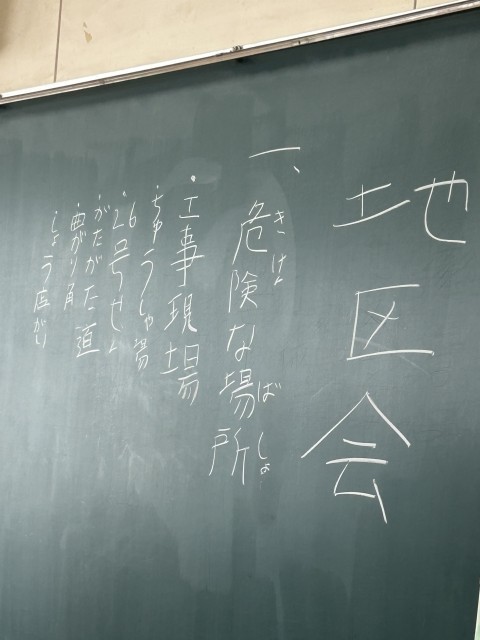 地区会
一、
危険な場所
きけん
ばしょ
・工事現場
・ちゅうしゃ場
・26号せん
・がたがた道
・曲がり角